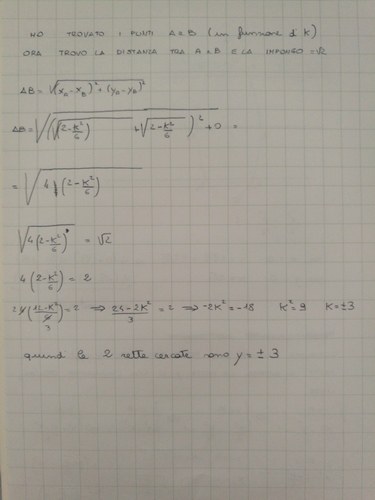 HO TROVATO I PUNTI A e B (in funzione di K)
ORA TROVO LA DISTANZA TRA A e B E LA IMPONGO = √2
AB = √((x_A - x_B)² + (y_A - y_B)²)
AB = √((√(2 - K²/6) + √(2 - K²/6))² + 0) =
= √(4(2 - K²/6))
√(4(2 - K²/6)) = √2
4(2 - K²/6) = 2
4((12 - K²)/6) = 2 ⇒ (24 - 2K²)/3 = 2 ⇒ -2K² = -18 K² = 9 K = ±3
quindi le 2 rette cercate sono y = ± 3